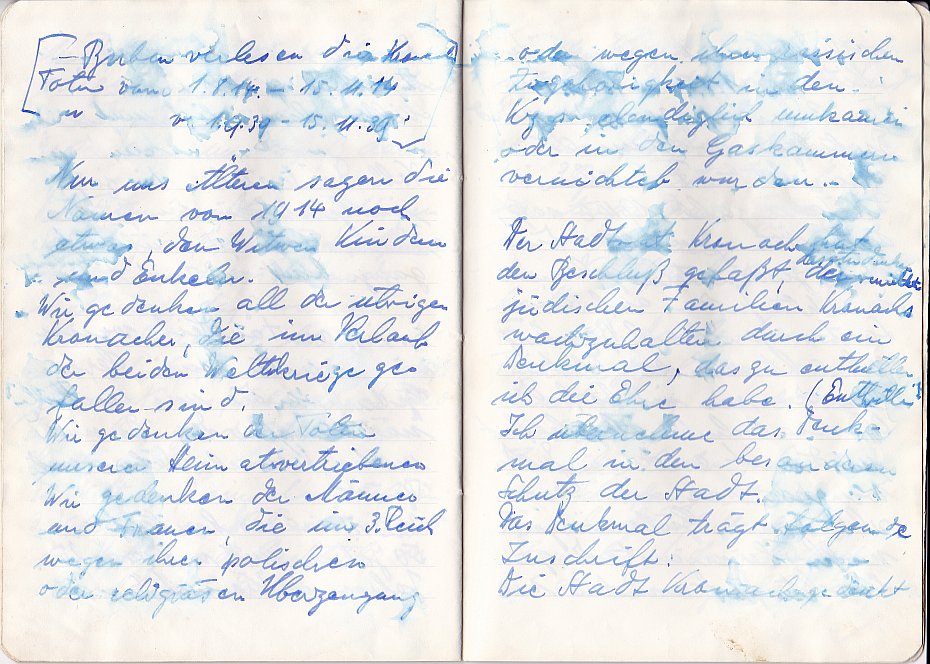 – Buben verlesen die Kron.
Toten vom 1.8.14. – 15.11.14
" v 1.9.39 – 15.11.39
Nur uns Älteren sagen die
Namen von 1914 noch
etwas, den Witwen Kindern
und Enkeln.
Wir gedenken all der übrigen
Kronacher, die im Verlauf
der beiden Weltkriege ge-
fallen sind.
Wir gedenken der Toten
unserer Heimatvertriebenen
Wir gedenken der Männer
und Frauen, die im 3. Reich
wegen ihrer politischen
oder religiösen Überzeugung
oder wegen ihrer rassischen
Zugehörigkeit in den
Kzs elendiglich umkamen
oder in den Gaskammern
vernichtet wurden. –
Der Stadtrat Kronach hat
den Beschluß gefaßt, der
jüdischen Familien Kronachs
wachzuhalten durch ein
Denkmal, das zu enthüllen
ich die Ehre habe. (Enthüllen
Ich übernehme das Denk-
mal in den besonderen
Schutz der Stadt.
Das Denkmal trägt folgende
Inschrift:
Die Stadt Kronach gedenkt